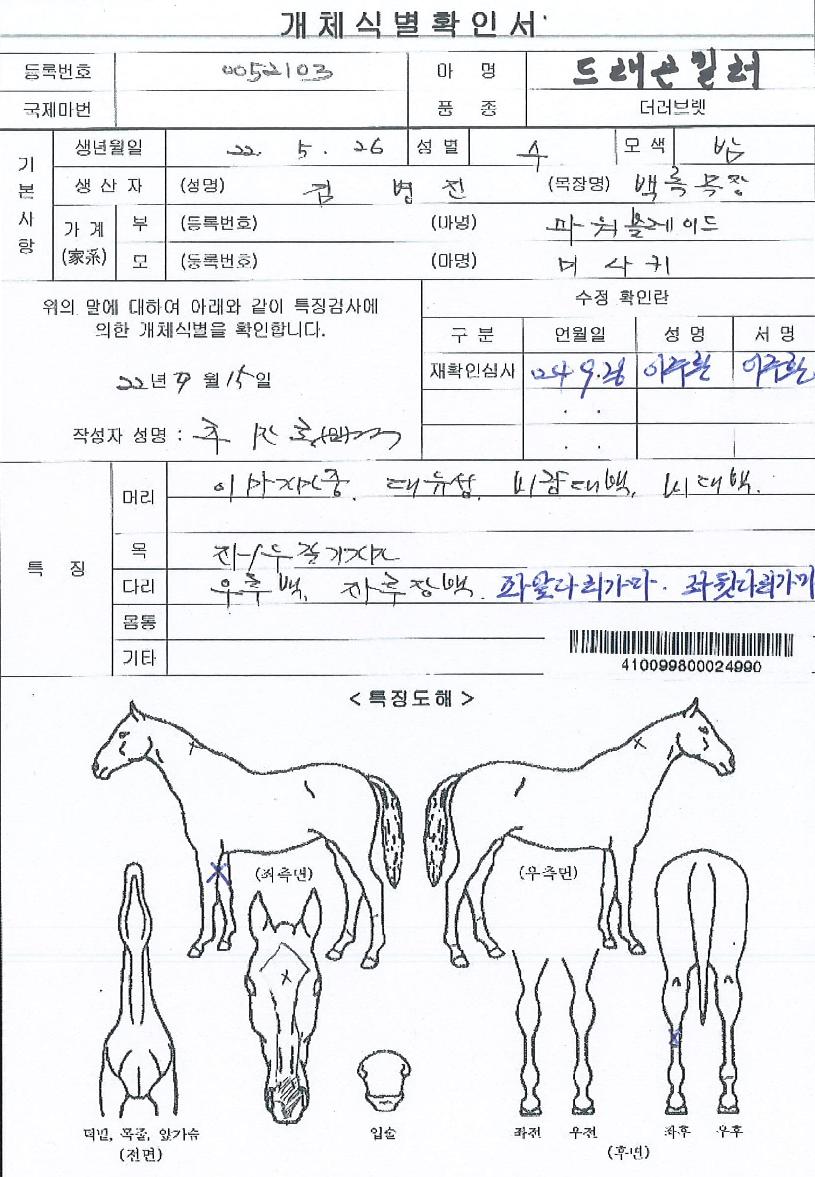 개체식별확인서
등록번호 0052103 마 명 드래곤킬러
국제마번 품 종 더러브렛
기본사항
생년월일 22. 5. 26 성별 수 모색 밤
생산자 (성명) 김 병 진 (목장명) 백록목장
가계 (家系) 부 (등록번호) (마명) 파워블레이드
모 (등록번호) (마명) 미사키
위의 말에 대하여 아래와 같이 특징검사에
의한 개체식별을 확인합니다.
22년 9월 15일
작성자 성명 :
수정 확인란
구 분 언월일 성 명 서 명
재확인심사 이주환 이주환
. .
. .
특 징
머리 이마자중. 대유성. 비량대백, 비대백.
목 좌우 줄기자
다리 우후백, 좌후장백. 좌앞다리가마. 좌뒷다리가마
몸통
기타
410099800024990
< 특징도해 >
(좌측면)
(우측면)
턱밑, 목줄, 앞가슴
(전면)
입술
좌전 우전 좌후 우후
(후면)